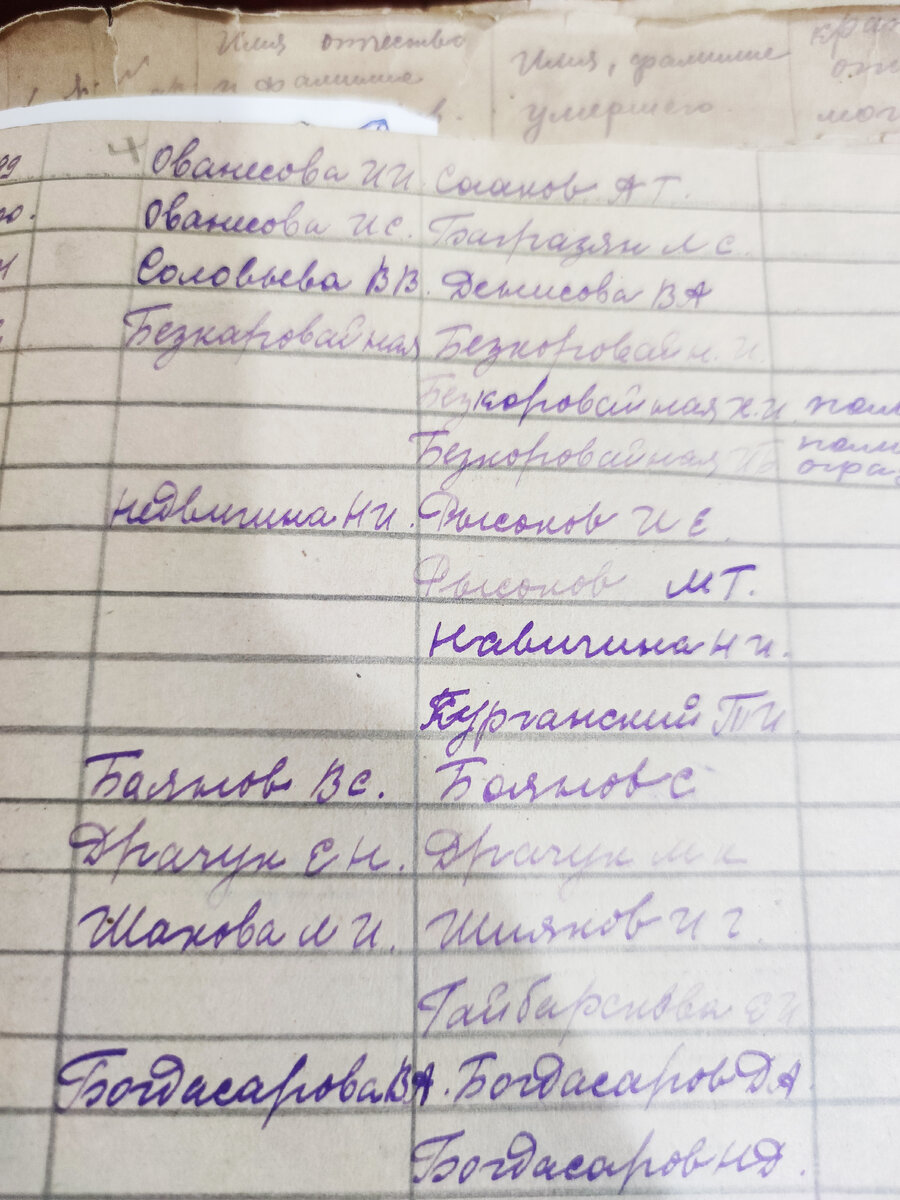 Имя отчество Имя, фамилие
и фамилие умершего
Ованесова И И. Сааков А Т.
Ованесова И С. Багразян М С.
Соловьева В В. Денисова В А
Безкаровайная Безкоровайн. И.
Безкоровайная Х. И.
Безкоровайная
Недвигина Н И. Рысоков И Е
Рысоков М Т.
Навичина Н И.
Курганский П И
Баянов В С. Боянов С
Драчук Е Н. Драчук М К
Шахова Л И. Шияков И Г.
Гайбарснова Е И
Богдасарова В А. Богдасаров Д А.
Богдасаров Н Д.